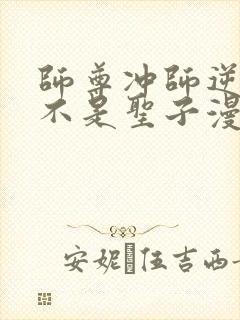 師尊冲師逆
不是聖子漫
安妮 伍吉西